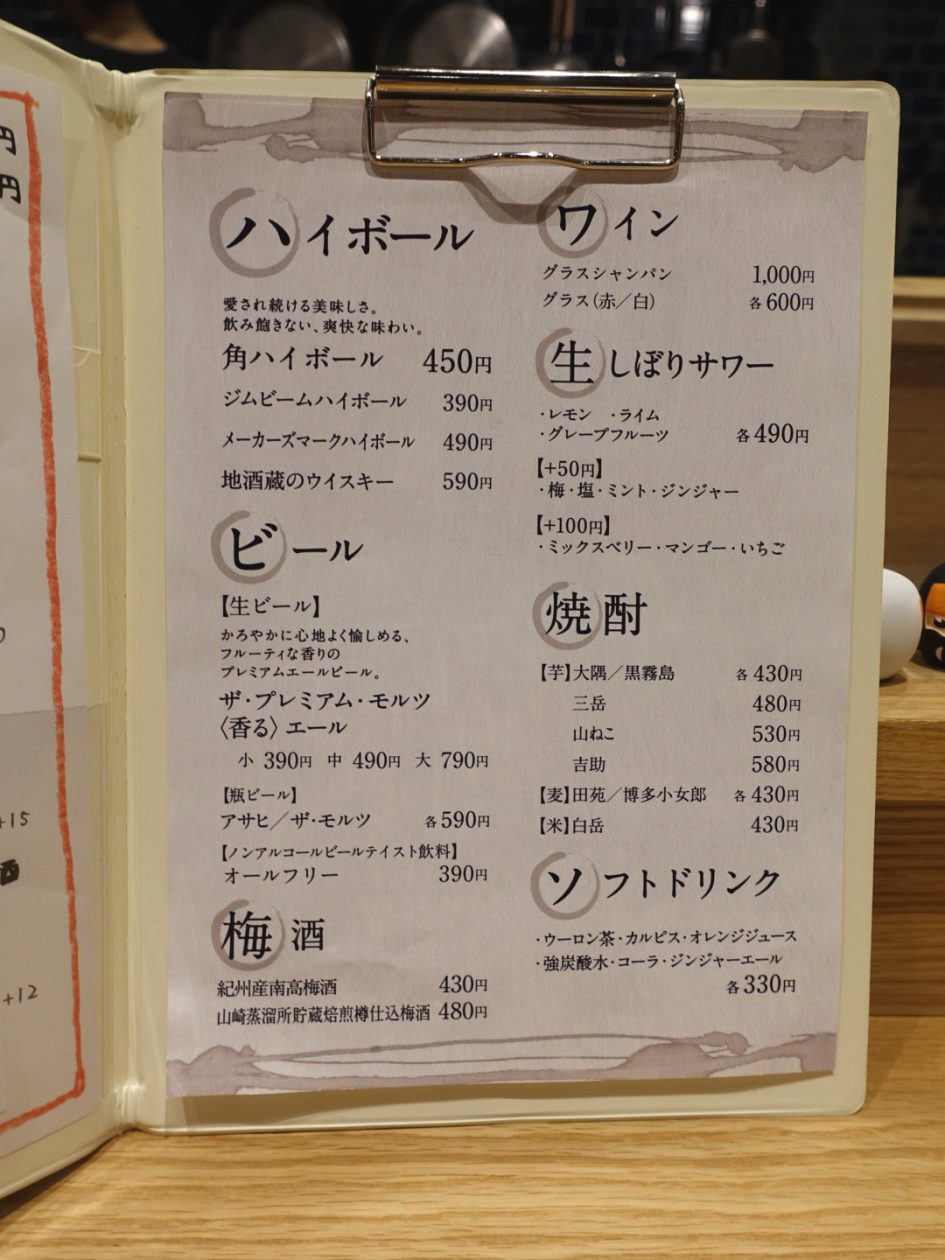 円
円
+15
酒
+12
ハイボール
愛され続ける美味しさ。
飲み飽きない、爽快な味わい。
角ハイボール 450円
ジムビームハイボール 390円
メーカーズマークハイボール 490円
地酒蔵のウイスキー 590円
ビール
【生ビール】
かろやかに心地よく愉しめる、
フルーティな香りの
プレミアムエールビール。
ザ・プレミアム・モルツ
〈香る〉エール
小 390円 中 490円 大 790円
【瓶ビール】
アサヒ／ザ・モルツ 各590円
【ノンアルコールビールテイスト飲料】
オールフリー 390円
梅酒
紀州産南高梅酒 430円
山崎蒸溜所貯蔵焙煎樽仕込梅酒 480円
ワイン
グラスシャンパン 1,000円
グラス（赤／白） 各600円
生しぼりサワー
・レモン ・ライム
・グレープフルーツ 各490円
【+50円】
・梅・塩・ミント・ジンジャー
【+100円】
・ミックスベリー・マンゴー・いちご
焼酎
【芋】大隅／黒霧島 各430円
三岳 480円
山ねこ 530円
吉助 580円
【麦】田苑／博多小女郎 各430円
【米】白岳 430円
ソフトドリンク
・ウーロン茶・カルピス・オレンジジュース
・強炭酸水・コーラ・ジンジャーエール
各330円